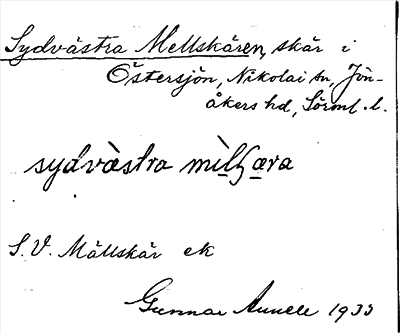 Sydvästra Mellskären, skär i
Östersjön, Nikolai sn, Jön-
åkers hd, Sörml. l.
sydvàstra mìlʃæra
S.V. Mällskär ek
Gunnar 1933